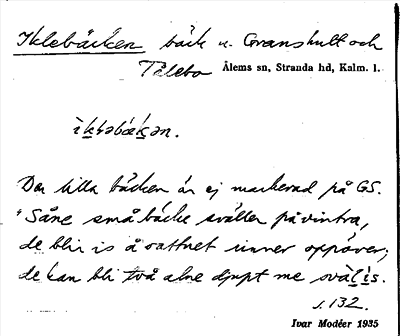 Iklebäcken bäck n. Granshult och
Tålebo Ålems sn, Stranda hd, Kalm. l.
ìkləbæ̀kən.
Den lilla bäcken är ej markerad på GS.
"Såne små bäcke sväller på vintra,
de blir is å vattnet rinner oppåver;
de kan bli två alne djupt me svàl ìs.
s. 132.
Ivar Modéer 1935